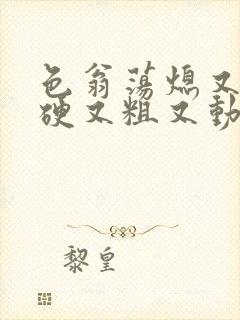 色翁荡熄又
硬又粗又動
黎皇